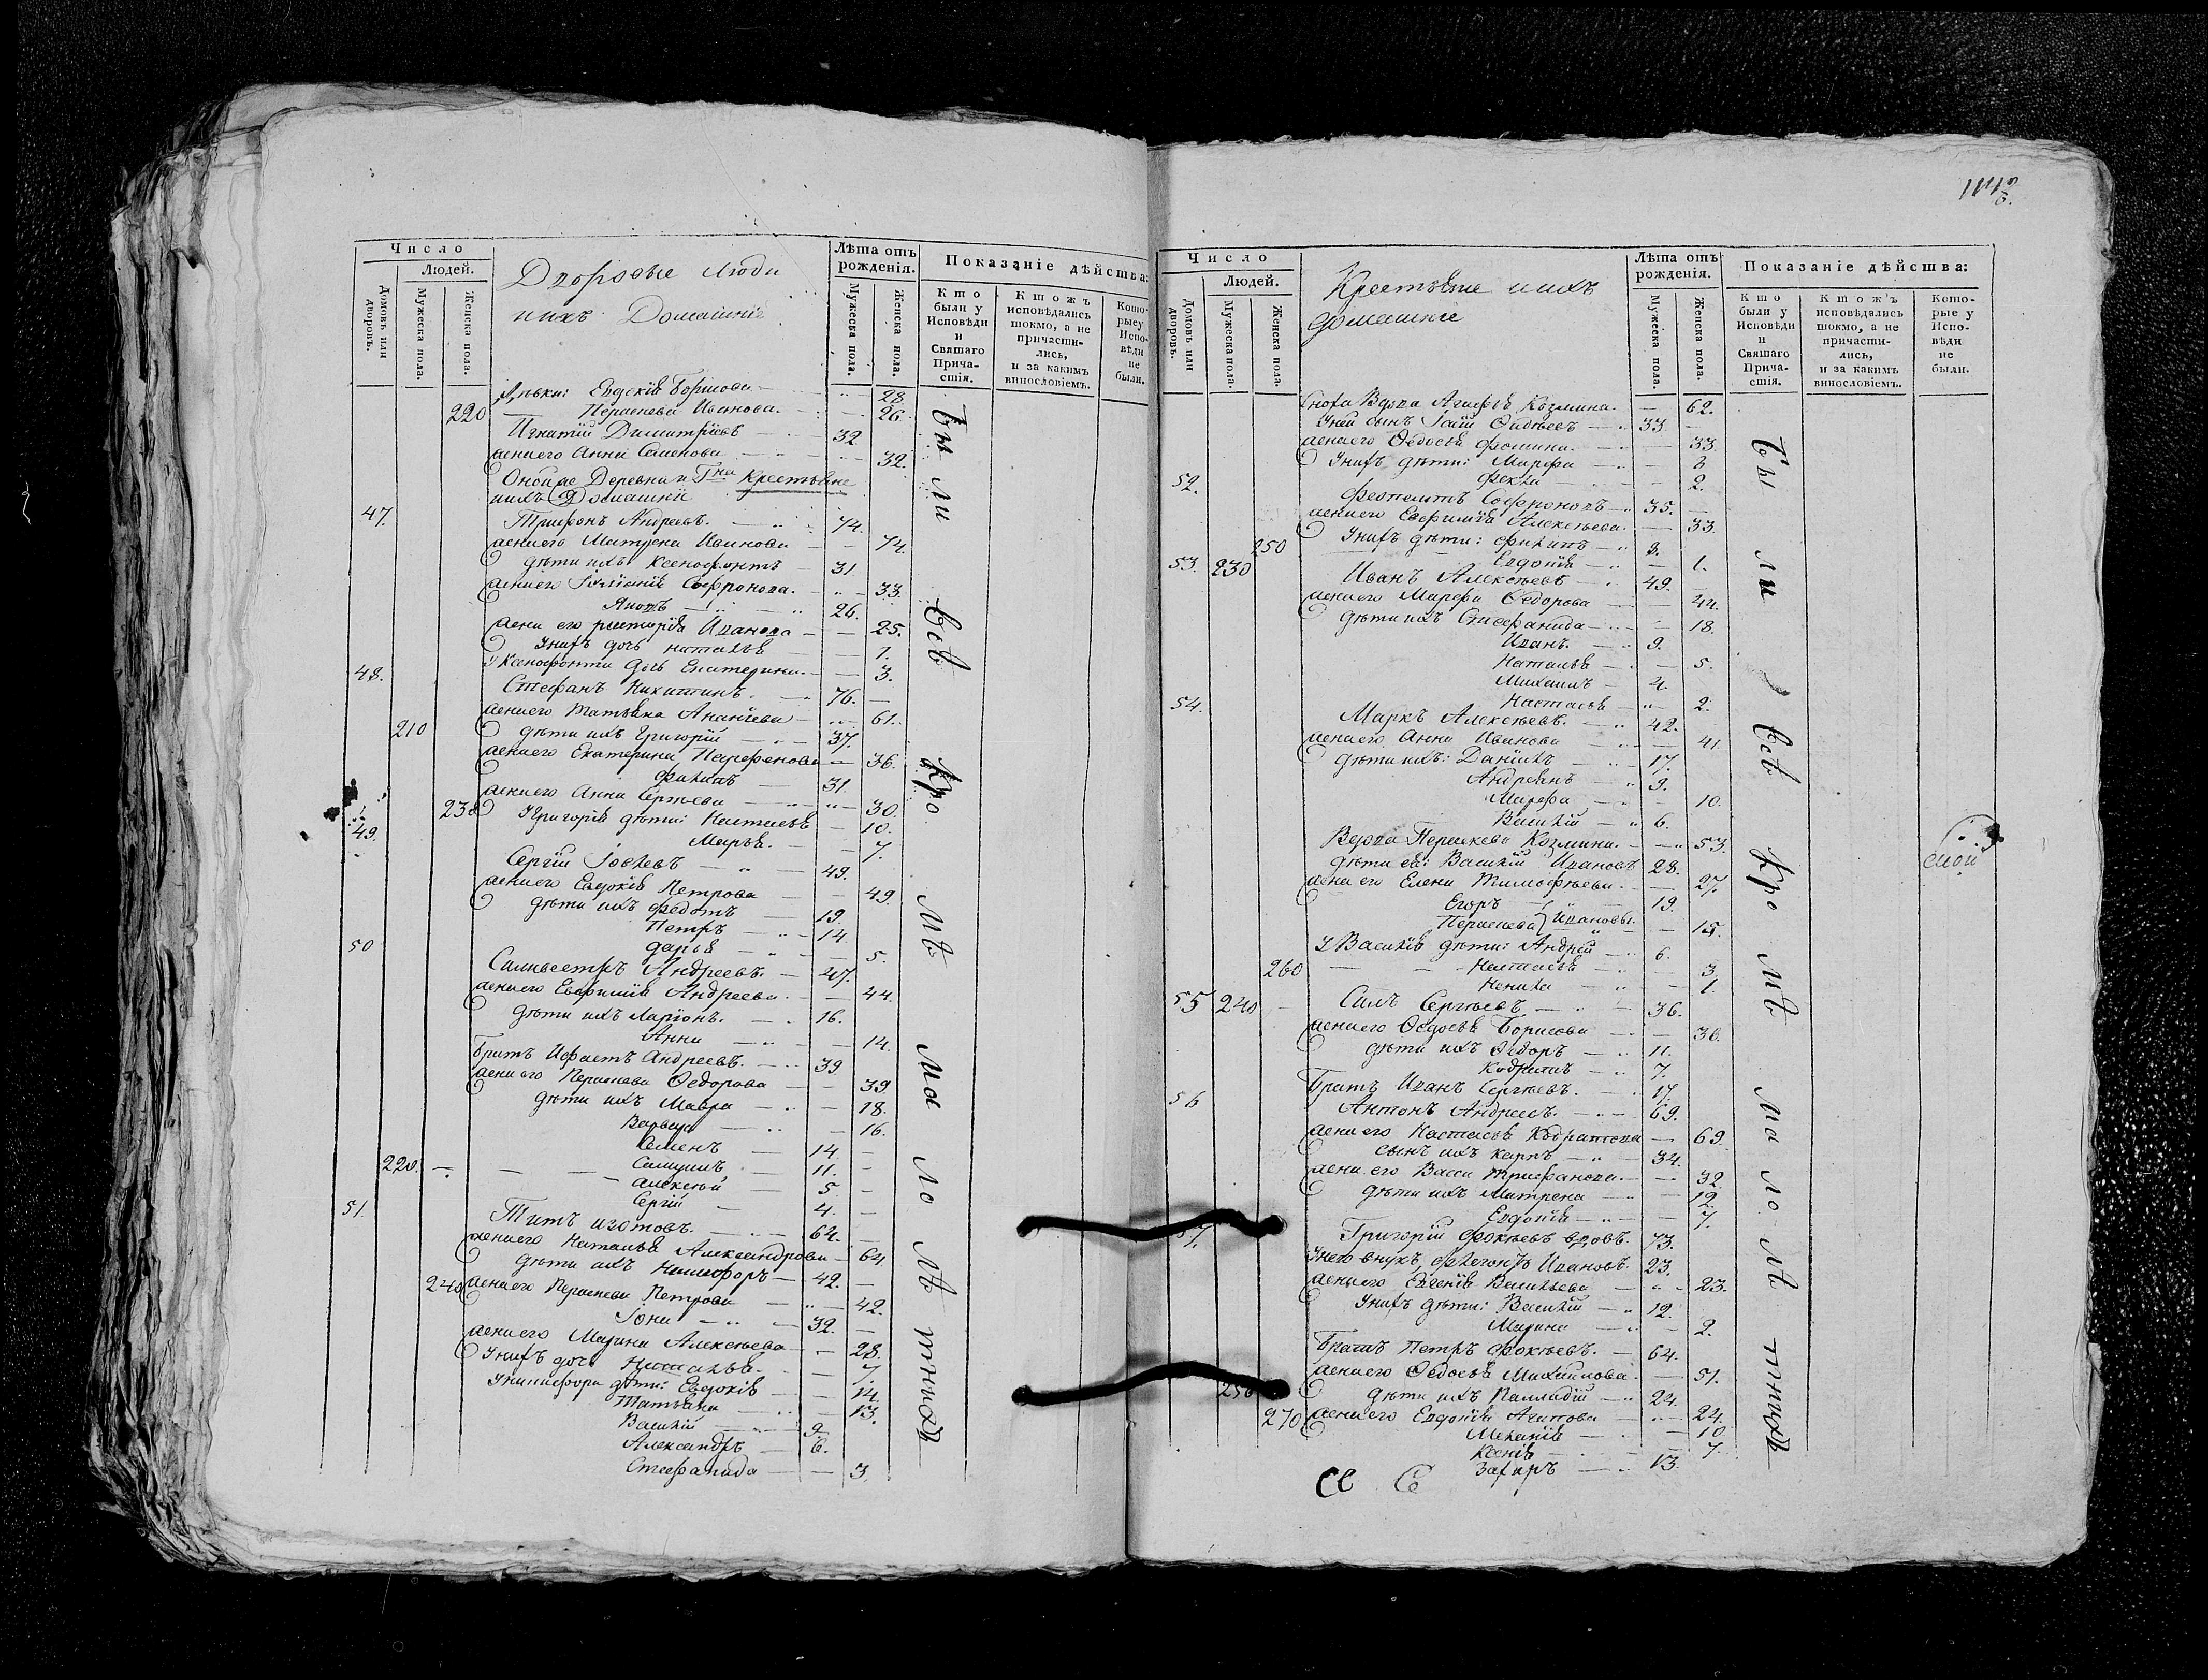 Число
Людей.
Домовъ или дворовъ.
Мужеска пола.
Женска пола.
Дворовые люди
и ихъ Домашніе
Лѣта отъ рожденія.
Мужеска пола.
Женска пола.
Показаніе дѣйства:
Кто были у Исповѣди и Святаго Причастія.
Ктожъ исповѣдались токмо, а не причастились, и за какимъ винословіемъ.
Которые у Исповѣди не были.
Евдокія Борисова 28.
220 Параскева Иванова. 26.
Игнатій Димитріевъ 32.
жена его Анна Семенова 32.
Оной же Деревни и Гна Крестьяне
и ихъ Домашніе
47. Трифонъ Андреевъ. 74.
жена его Матрена Иванова 74.
дѣти ихъ Ксенофонтъ 31.
жена его Софронова. 33.
26.
жена его Иванова 25.
У нихъ дочь Наталья 1.
У Ксенофонта дочь Екатерина. 3.
48. Стефанъ Никитинъ. 76.
жена его Татьяна Ананіева 61.
210 дѣти ихъ Григорій 37.
жена его Екатерина Парфенова 36.
Филипъ 31.
жена его Анна Сергѣева 30.
230 У Григорія дѣти: Настасья 10.
Марья. 7.
49. Сергій Іовлевъ 49.
жена его Евдокія Петрова 49.
дѣти ихъ Федотъ 19
Петръ 14.
Дарья 5.
50 Сильвестръ Андреевъ. 47.
жена его Евфимія Андреева. 44.
дѣти ихъ Ларіонъ. 16.
Анна 14.
Братъ Андреевъ. 39.
жена его Параскева Федорова 39
дѣти ихъ Мавра 18.
Варвара 16.
Семенъ 14.
220. Самуилъ 11.
Алексѣй 5.
Сергій 4.
51. Титъ Изотовъ. 64.
жена его Наталья Александрова 64
дѣти ихъ Никифоръ 42.
240 жена его Параскева Петрова 42.
Іона 32.
жена его Марина Алексѣева 28.
У нихъ дочь Наталья. 7.
У Никифора дѣти: Евдокія 14.
Татьяна 13.
Василій 9
Александръ 6.
Стефанида 3.
Бы ли всѣ Кро мѣ ма ло лѣ тныхъ
Число
Людей.
Домовъ или дворовъ.
Мужеска пола.
Женска пола.
Крестьяне и ихъ
домашніе
Лѣта отъ рожденія.
Мужеска пола.
Женска пола.
Показаніе дѣйства:
Кто были у Исповѣди и Святаго Причастія.
Ктожъ исповѣдались токмо, а не причастились, и за какимъ винословіемъ.
Которые у Исповѣди не были.
Сноха Вдова Агафья Козмина. 62.
У ней сынъ 33
жена его Федосья Фомина. 33.
У нихъ дѣти: Марфа 3
Фекла 2.
52. Софроновъ 35.
жена его Евфимія Алексѣева. 33.
250 У нихъ дѣти: Филипъ 3.
Евдокія 1.
53. 230 Иванъ Алексѣевъ 49.
жена его Марфа Федорова 44.
дѣти ихъ Стефанида 18.
Иванъ. 9.
Наталья 5.
Михаилъ 4.
Настасья 2.
54. Маркъ Алексѣевъ. 42.
жена его Анна Иванова 41.
дѣти ихъ: Даніилъ 17.
Андреянъ 9.
Марфа 10.
Василій 6.
Вдова Параскева Козмина. 53.
дѣти ея: Василій Ивановъ 28.
жена его Елена Тимофѣева. 27.
Егоръ 19.
Параскева Ивановы. 15.
У Василія дѣти: Андрей 6.
260 Настасья 3.
1.
55 240 Силъ Сергѣевъ 36.
жена его Федосья Борисова 36.
дѣти ихъ Федоръ 11.
Кодратъ 7.
Братъ Иванъ Сергѣевъ. 17.
56 Антонъ Андреевъ. 69.
жена его Настасья Кодратова 69.
сынъ ихъ Карпъ 34.
жена его Васса Трифанова. 32
дѣти ихъ Матрена 12.
Евдокія 7.
57. Григорій Фокѣевъ вдовъ. 73.
У него внукъ, Флегонтъ Ивановъ. 23.
жена его Евгенія Васильева 23.
У нихъ дѣти: Василій 12.
Марина 2.
Братъ Петръ Фокѣевъ. 64.
жена его Федосья Михайлова. 51.
250 дѣти ихъ Палладій 24.
270 жена его Евдокія Агапова 24.
Меланія 10
Ксенія 7.
Захаръ 13.
Бы ли всѣ Кро мѣ ма ло лѣ тныхъ